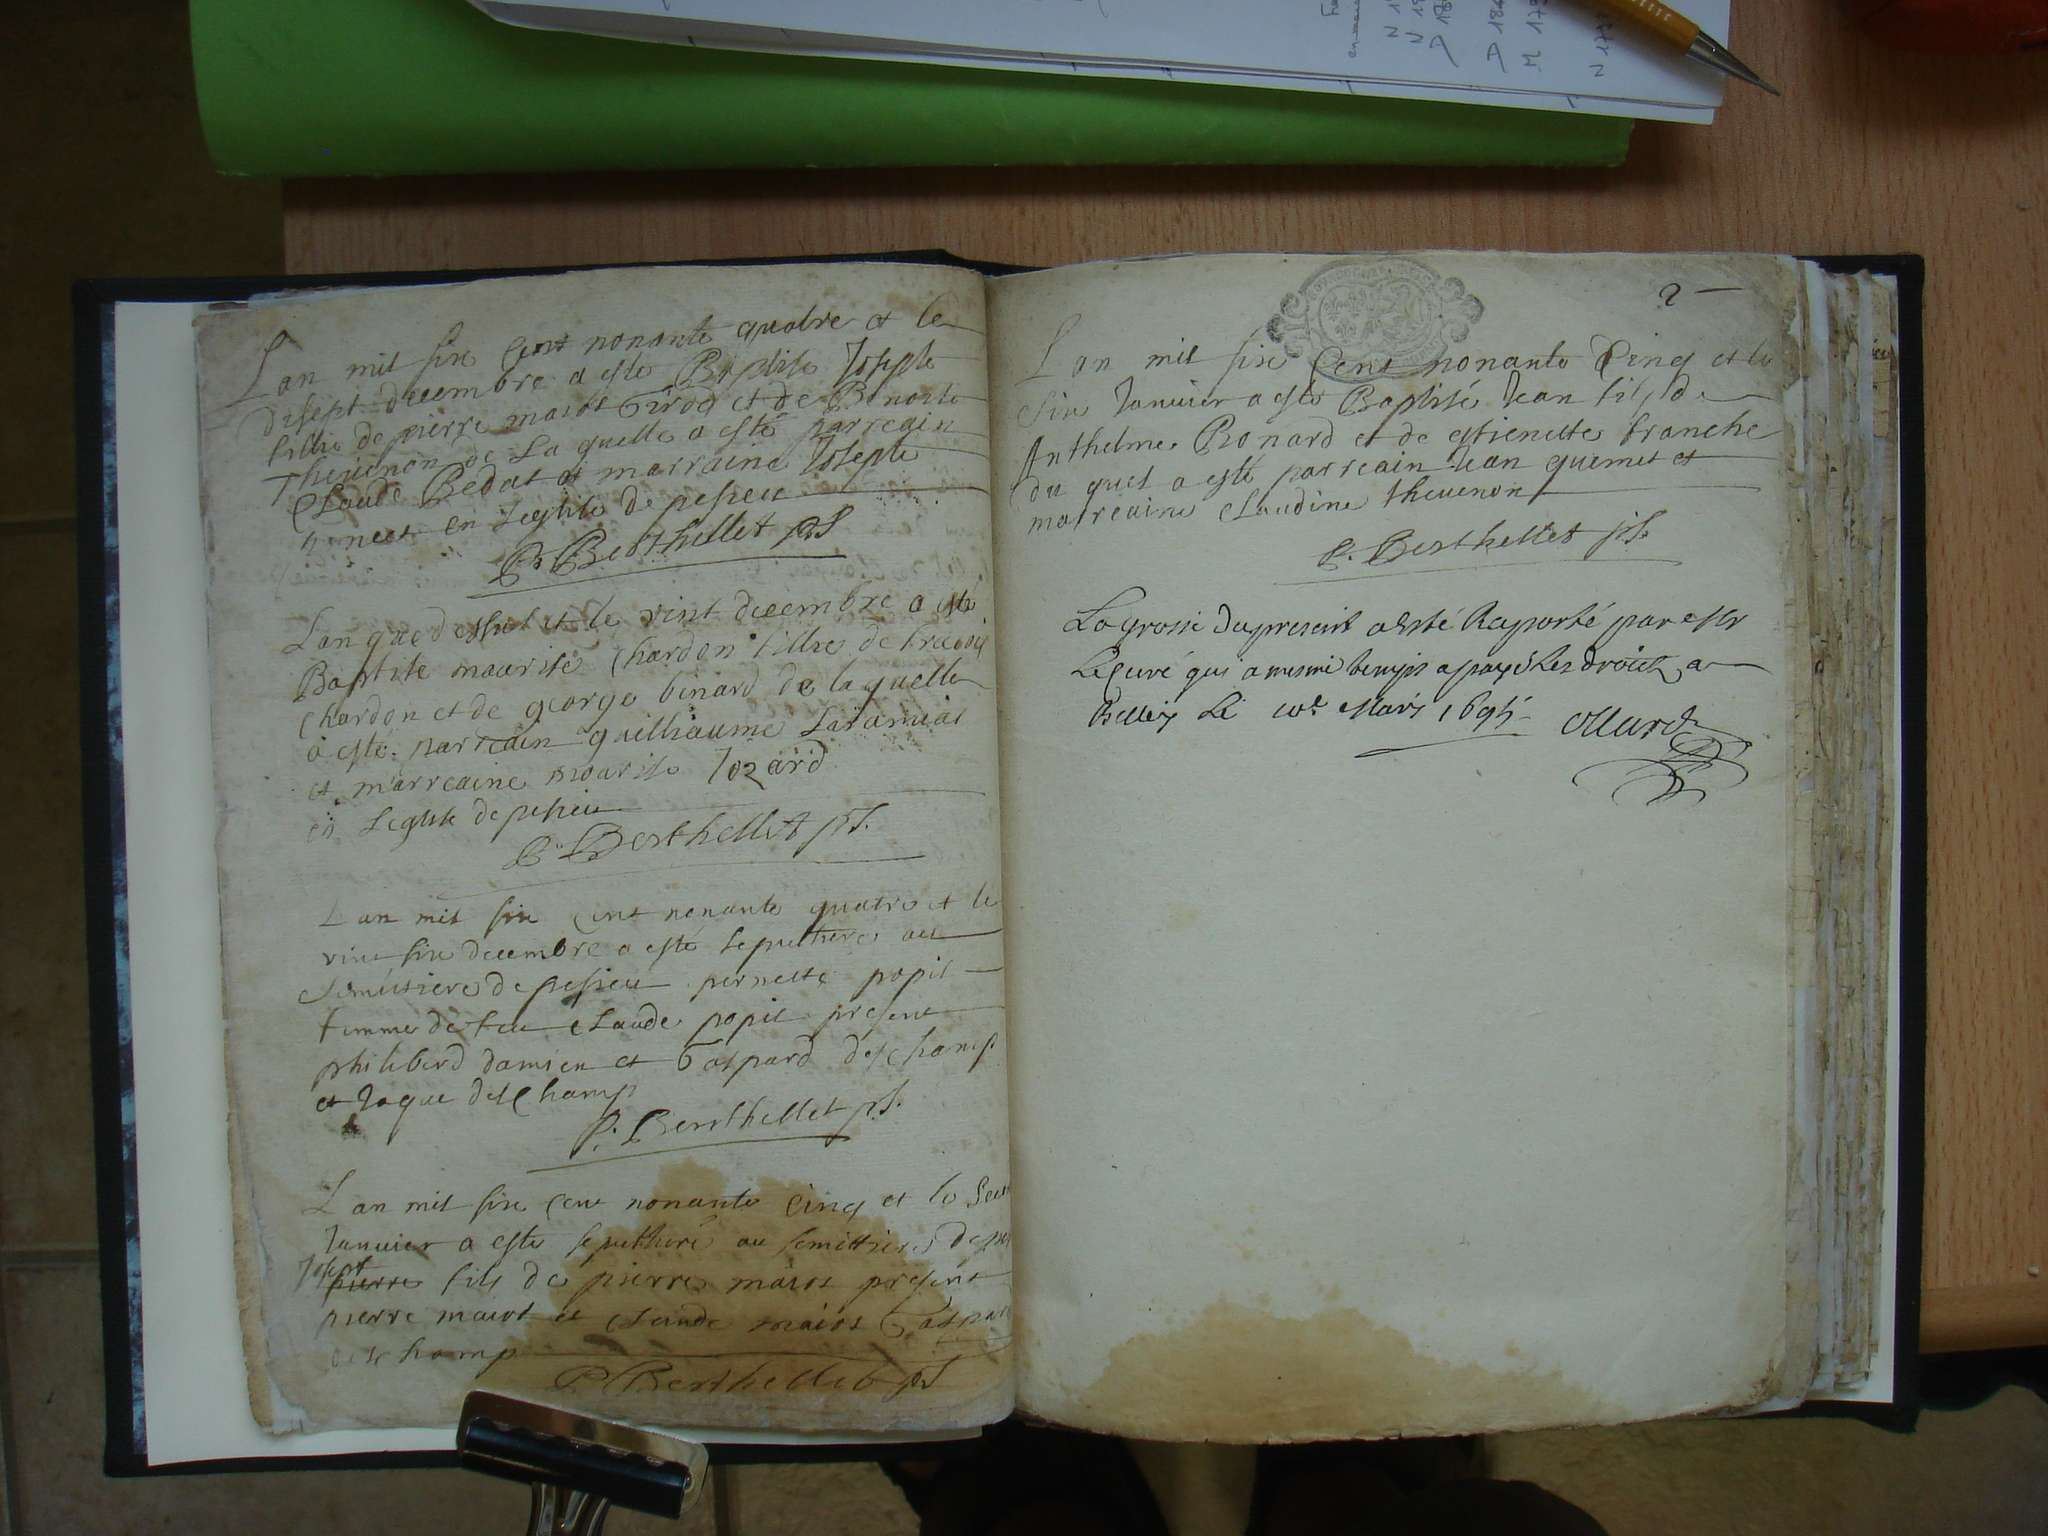 Lan mil six Cent nonante quatre et le
disept decembre a este Baptise Josephe
fillie de pierre maiot Giroq et de Benoite
Thevenon de La quelle a esté parreain
Claude Bedat et marraine Josephe
en Leglise de pesieu
P. Berthellet pt.
Lan que dessus et le vint decembre a esté
Baptisée maurise Chardon fillie de francois
Chardon et de george binard de la quelle
a esté parreain guilliaume Laramiat
et marreaine maurise Jozard
en Leglise de pesieu
P. Berthellet pt.
Lan mil six Cent nonante quatre et le
vint six decembre a esté sepulturé au
semistiere de pesieu pernette popil
femme de feu Claude popil present
philiberd damien et Gaspard deschamp
et Jaque deschamp
P. Berthellet pt.
Lan mil six Cent nonante Cinq et le
Janvier a este sepulthuré au semittiere de
Joseph
pierre fils de pierre maiot present
pierre maiot et Claude maiot Gaspard
deschamp
P. Berthellet pt.
2
Lan mil six Cent nonante Cinq et le
six Janvier a este Baptisé Jean fils de
Anthelme Bonard et de estienette franche
du quel a esté parreain Jean quemet et
marreaine Claudine thevenon
P. Berthellet pt.
La grosse du present a esté Raporté par Mr
Le Curé qui a mesme temps a payé Les droits a
Belley Le Mars 1695